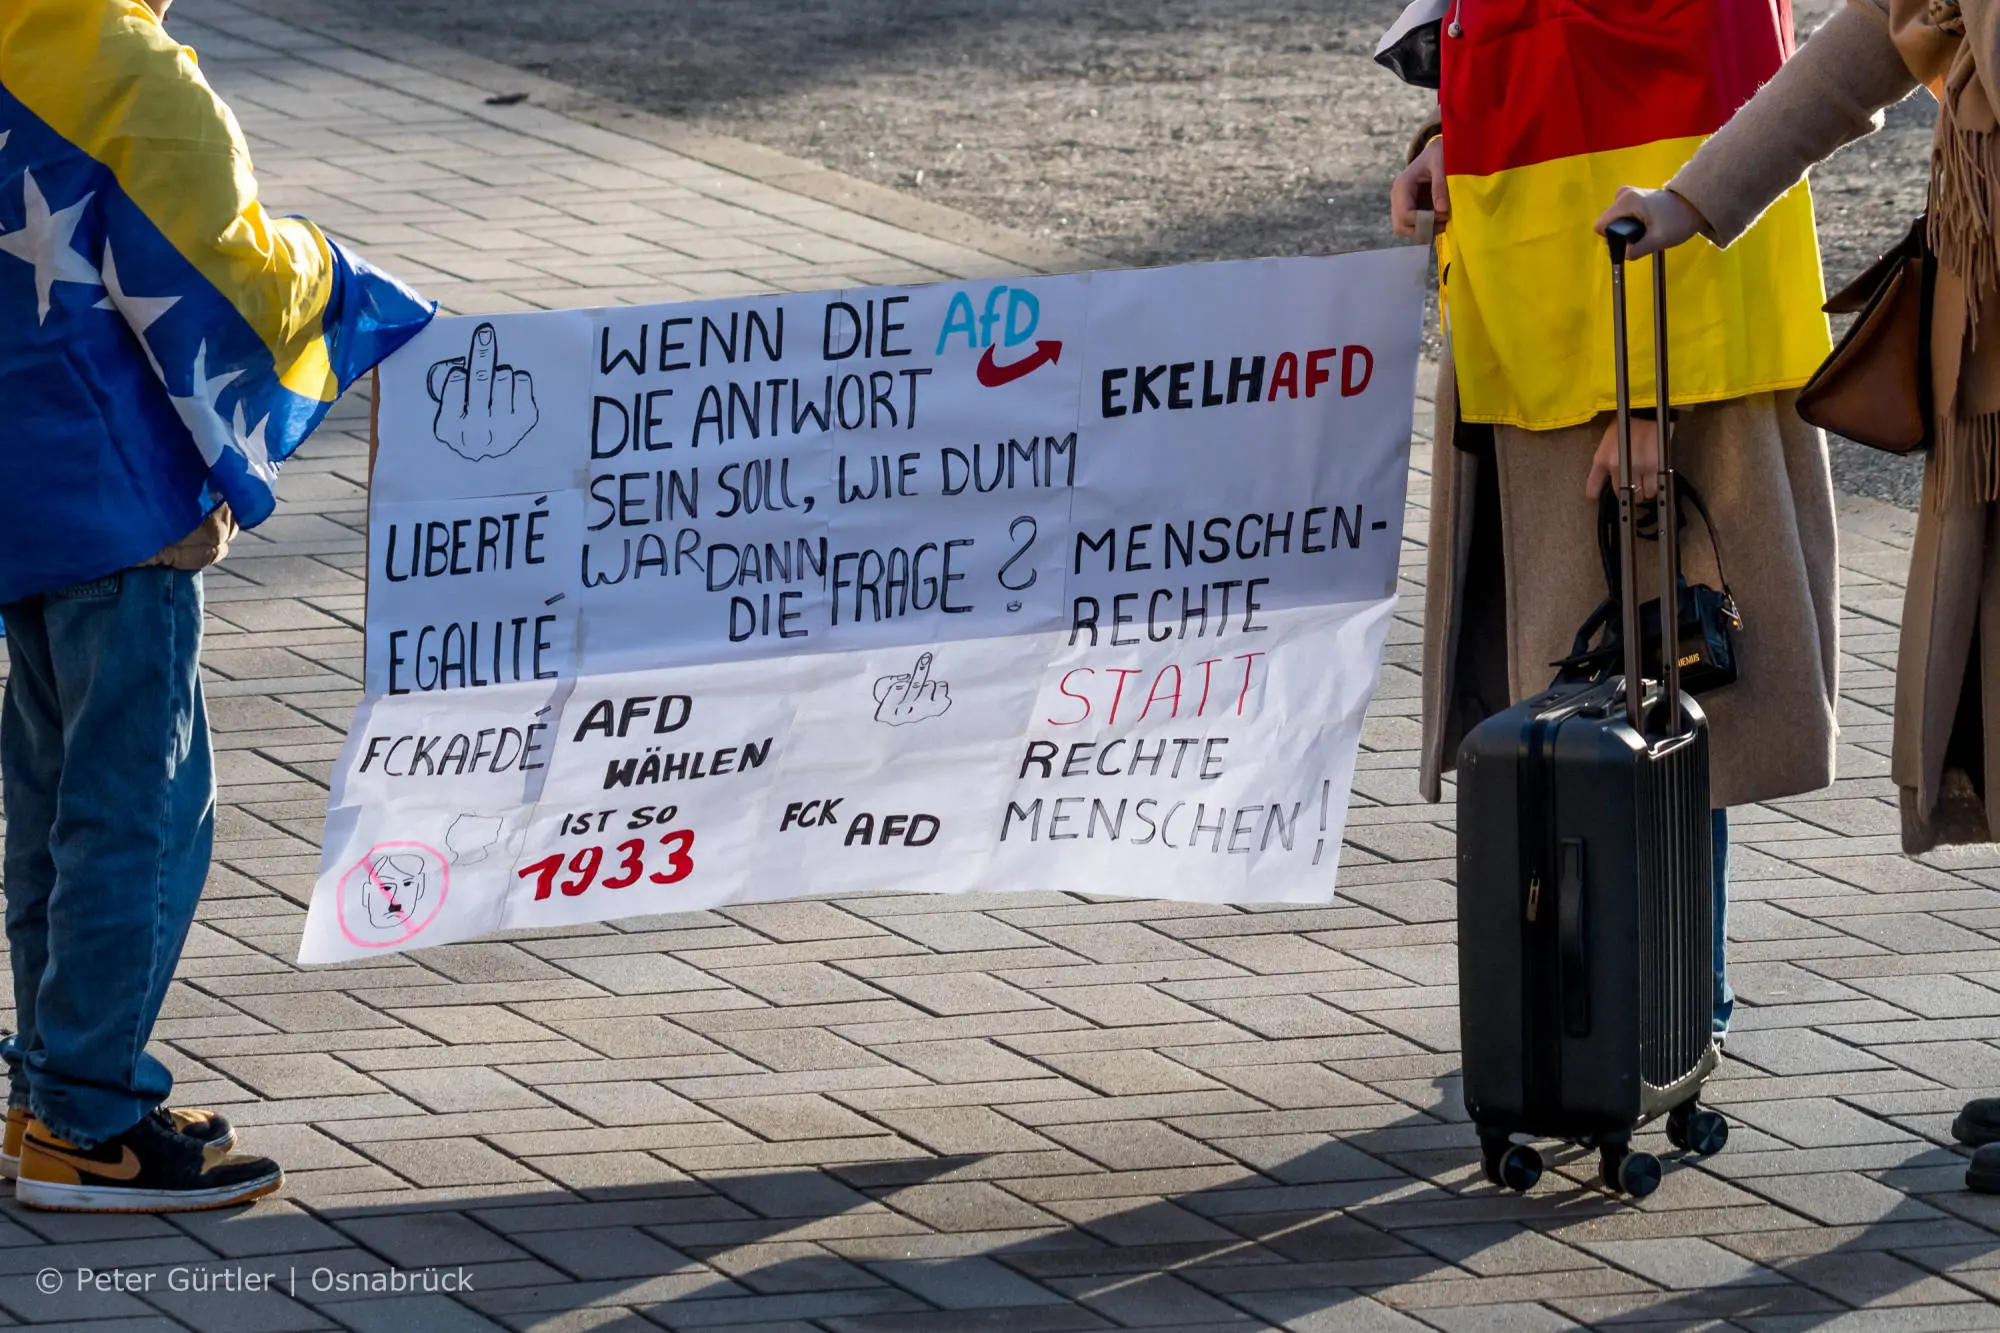 WENN DIE AfD
DIE ANTWORT
SEIN SOLL, WIE DUMM
WAR DANN
DIE FRAGE?
EKELHAFD
LIBERTÉ
EGALITÉ
FCKAFDÉ
AFD
WÄHLEN
IST SO
1933
FCK AFD
MENSCHEN-
RECHTE
STATT
RECHTE
MENSCHEN!
© Peter Gürtler | Osnabrück